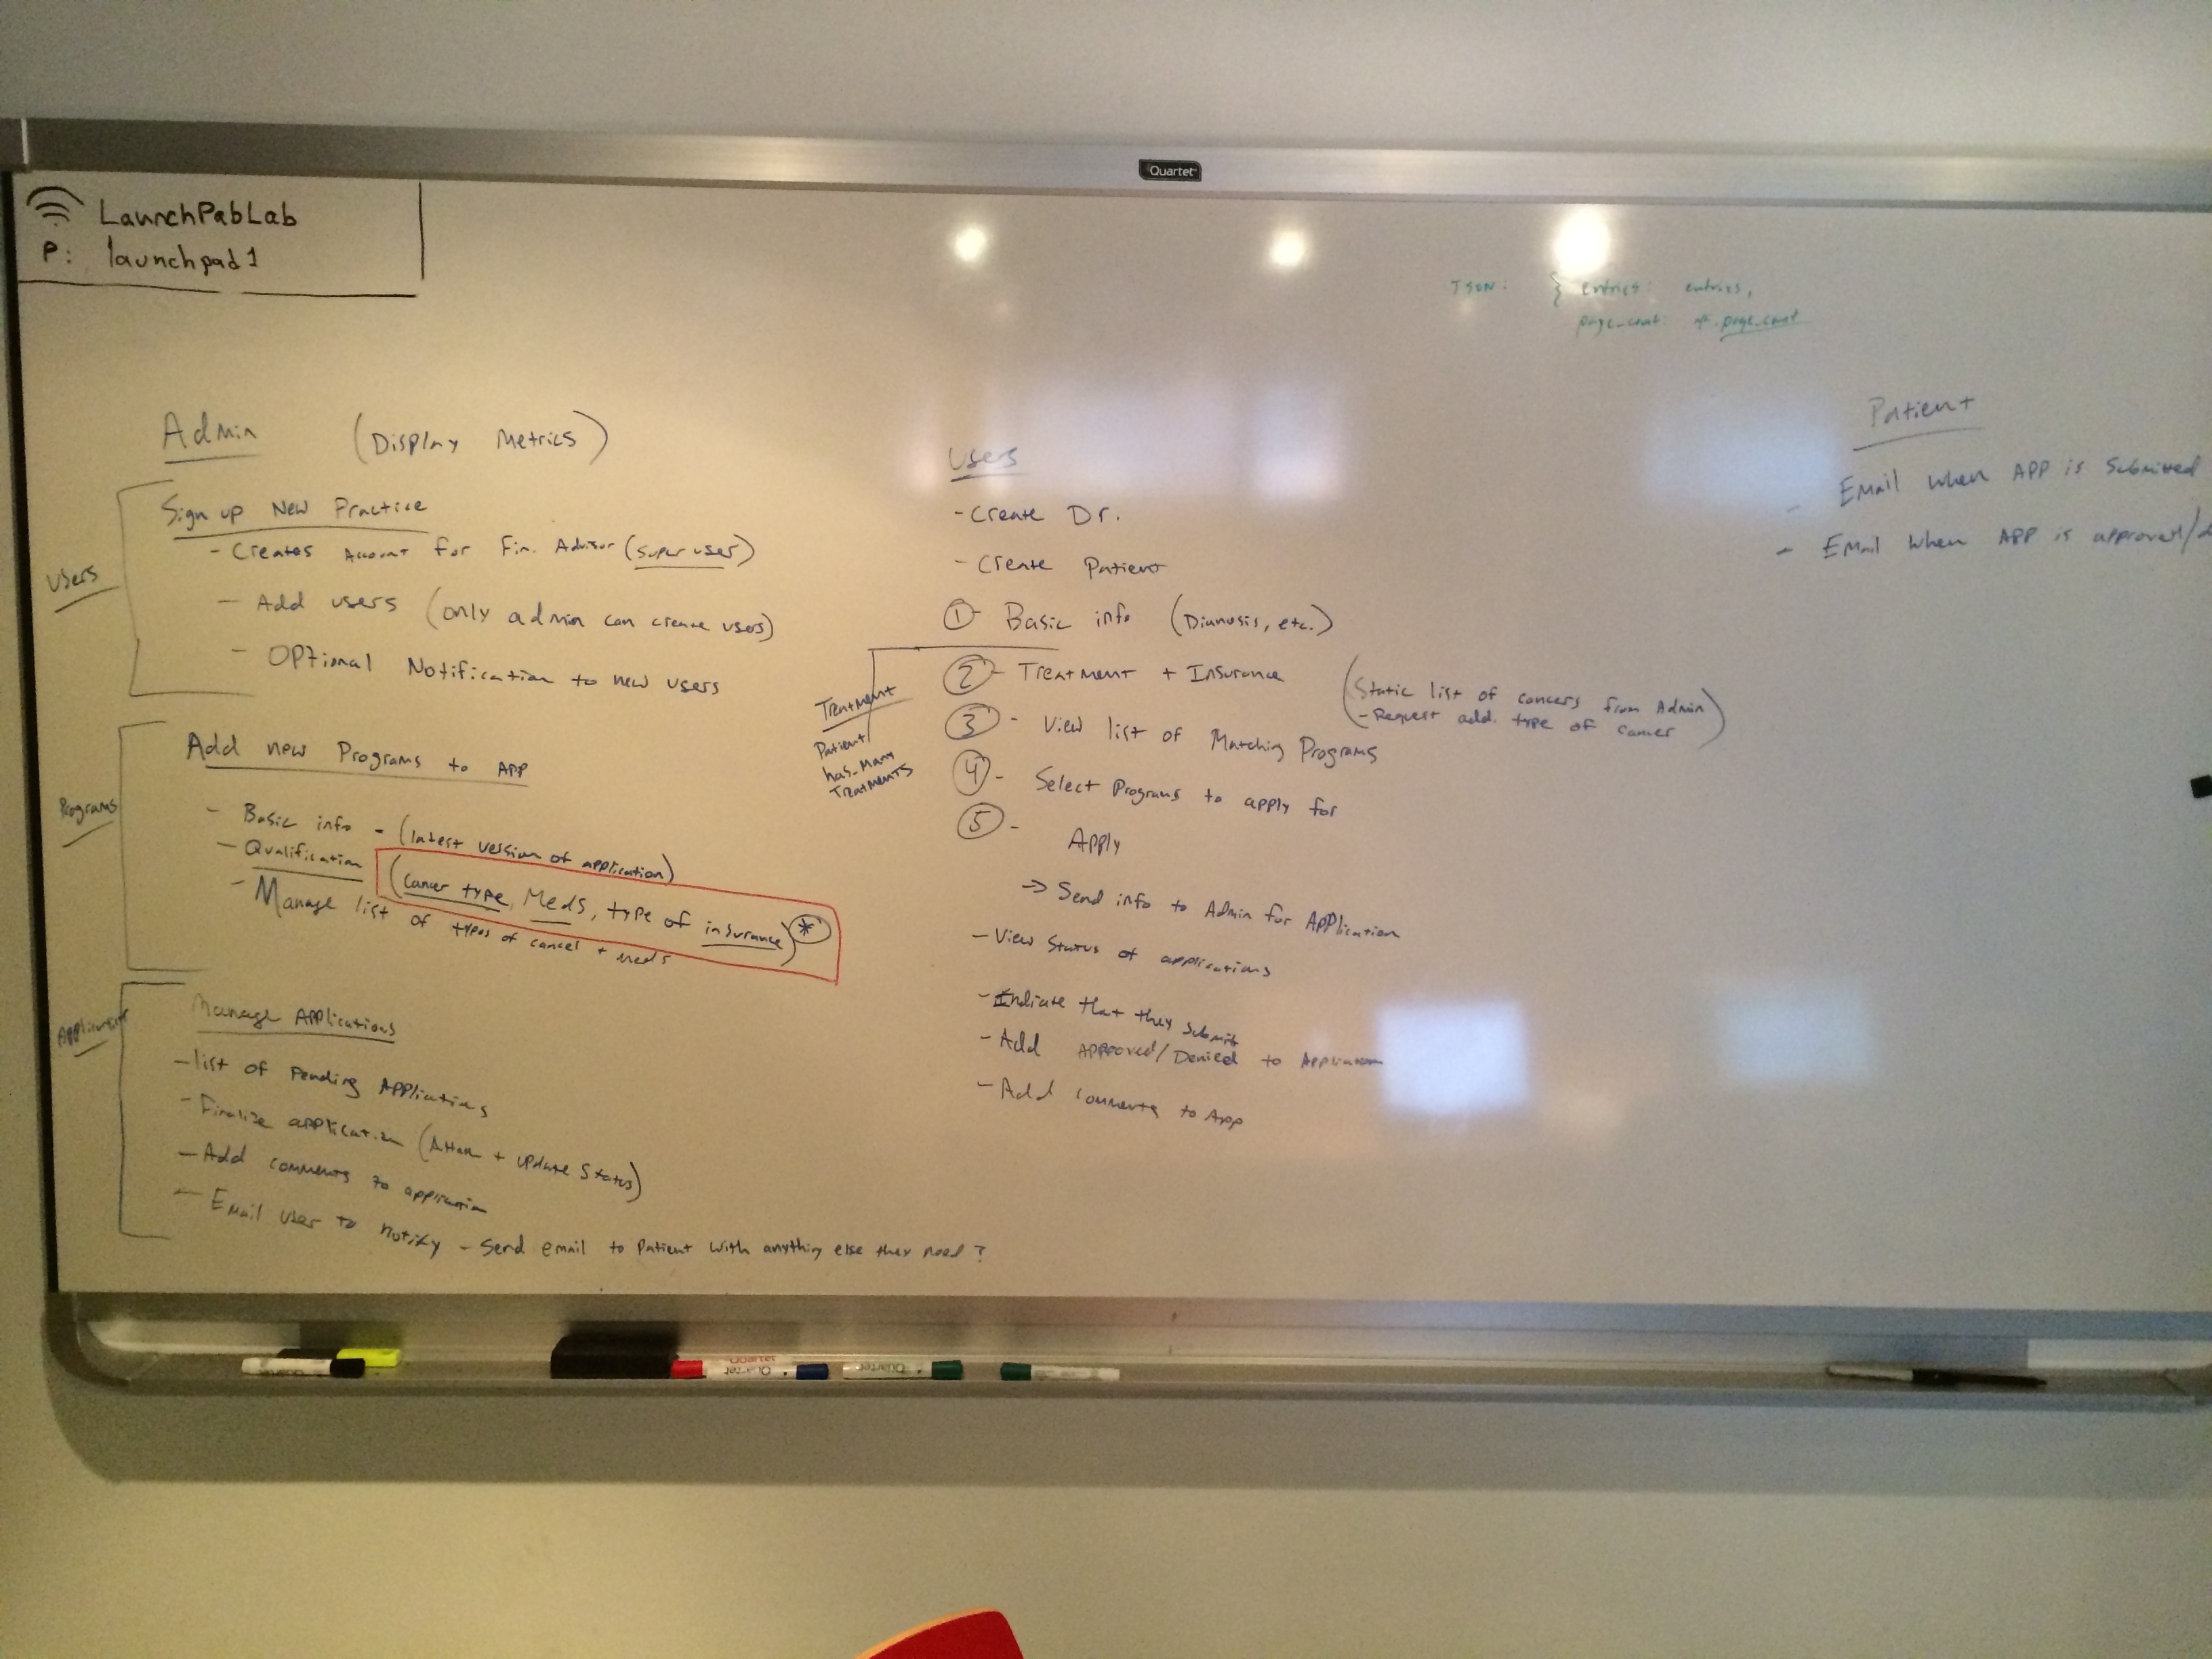 Quartet
LaunchPabLab
P: launchpad1
JSON: { entries: entries,
page_count: page_count
Admin (Display Metrics)
Users
Sign up New Practice
- Creates Account for Fin. Advisor (super user)
- Add users (only admin can create users)
- Optional Notification to new users
Programs
Add new Programs to APP
- Basic info - (latest version of application)
- Qualification (cancer type, Meds, type of insurance) *
- Manage list of types of cancel + meds
Manage Applications
- list of Pending Applications
- Finalize application (Attach + update Status)
- Add comments to application
- Email user to notify - Send email to Patient with anything else they need?
Users
- Create Dr.
- Create Patient
① - Basic info (Dianosis, etc.)
② - Treatment + Insurance (Static list of cancers from Admin
- Request add. type of cancer)
③ - View list of Matching Programs
④ - Select Programs to apply for
⑤ - Apply
→ Send info to Admin for Application
- View Status of applications
- Indicate that they submit
- Add Approved/Denied to Application
- Add comments to App
Treatment
Patient
has_many
Treatments
Patient
- Email when APP is Submitted
- Email when APP is approved/
Quartet
Quartet
Quartet